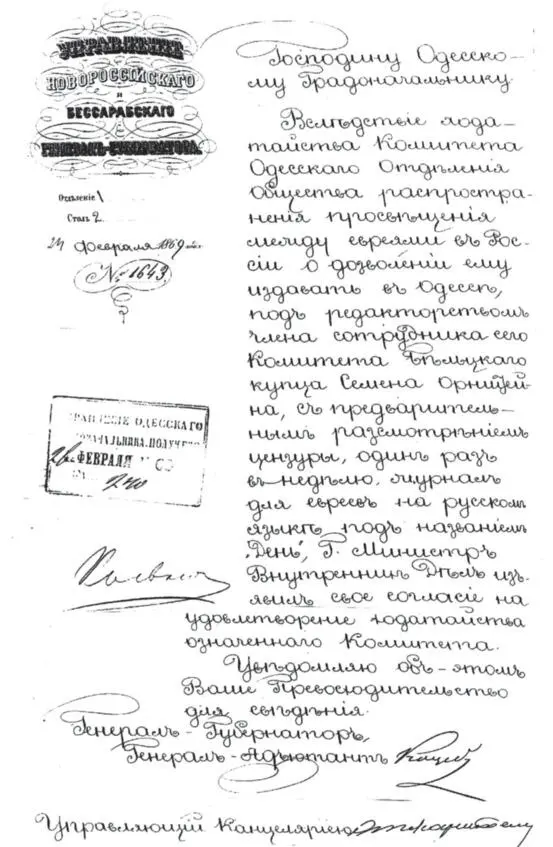 УПРАВЛЕНІЕ
НОВОРОССІЙСКАГО
и
БЕССАРАБСКАГО
ГЕНЕРАЛЪ-ГУБЕРНАТОРА.
Отдѣленіе 1
Столъ 2
24 февраля 1869 года
№ 1643
Господину Одесско-
му Градоначальнику
Вслѣдствіе хода-
тайства Комитета
Одесскаго Отдѣленія
Общества распростра-
ненія просвѣщенія
между евреями въ Рос-
сіи о дозволеніи ему
издавать въ Одессѣ,
подъ редакторствомъ
члена сотрудника сего
Комитета Бѣльцкаго
купца Семена Орнштей-
на, съ предваритель-
нымъ разсмотрѣніемъ
цензуры, одинъ разъ
въ недѣлю, журналъ
для евреевъ на русскомъ
языкѣ подъ названіемъ
„День", Г. Министръ
Внутреннихъ Дѣлъ изъ-
явилъ свое согласіе на
удовлетвореніе ходатайства
означеннаго Комитета.
Увѣдомляю объ этомъ
Ваше Превосходительство
для свѣдѣнія.
Генералъ-Губернаторъ,
Генералъ-Адъютантъ
Управляющій Канцеляріею
ОДЕССКАГО
НАЧАЛЬНИКА. ПОЛУЧЕНО
26 ФЕВРАЛЯ
240